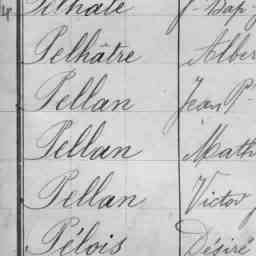 Pelhâtre Alber
Pellan Jean P
Pellan Math
Pellan Victor
Pélois Désiré